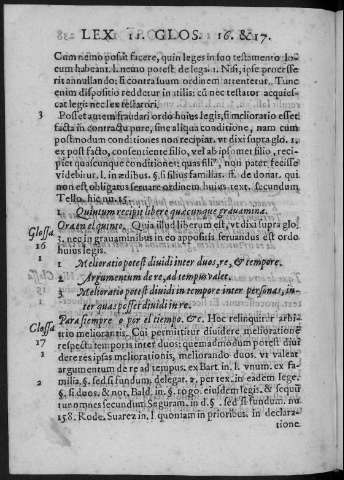 LEX 11. GLOS. 16. &17.
Cum nemo possit facere, quin leges in suo testamento lo-
cum habeant. l. nemo potest. de lega. 1. Nisi, ipse processe
rit annullando: si contra suum ordinem attentetur. Tunc
enim dispositio redderetur inutilis: cū nec testator acquies-
cat legis nec lex testatori.
3 Posset autem fraudari ordo huius legis, si melioratio esset
facta in contractu pure, sine aliqua conditione, nam cum
postmodum conditiones non recipiat. vt dixi supra glo. 1.
ex post facto, consentiente filio, vel ab ipsomet filio, reci-
piet quascunque conditiones: quas filiº, non pater fecisse
videbitur. l. in ædibus. §. si filius familias. ff. de donat. qui
non est obligatus seruare ordinem huius text. secundum
Tello. hic nu. 15.
1. Quintum recipit libere quæcunque grauamina.
Glossa 16 Ora en el quinto. Quia illud liberum est, vt dixi supra glo.
3. nec in grauaminibus in eo appositis seruandus est ordo
huius legis.
1 Melioratio potest diuidi inter duos, re, & tempore.
2 Argumentum de re, ad tempus valet.
3 Melioratio potest diuidi in tempore inter personas, in-
ter quas posset diuidi in re.
Glossa 17 Para siempre o por el tiempo. &c. Hoc relinquitur arbi-
1 trio meliorantis. Cui permittitur diuidere meliorationē
respectu temporis inter duos: quemadmodum potest diui
dere res ipsas meliorationis, meliorando duos. vt valeat
argumentum de re ad tempus. ex Bart. in l. vnum. ex fa-
2 milia. §. sed si fundum. delegat. 2. per tex. in eadem lege.
§. si duos. & not. Bald. in §. rogo. eiusdem legis. & sequū
tur omnes secundum Seguram. in d. §. sed si fundum. nu.
158. Rode. Suarez in. l. quoniam in prioribus. in declara-
tione